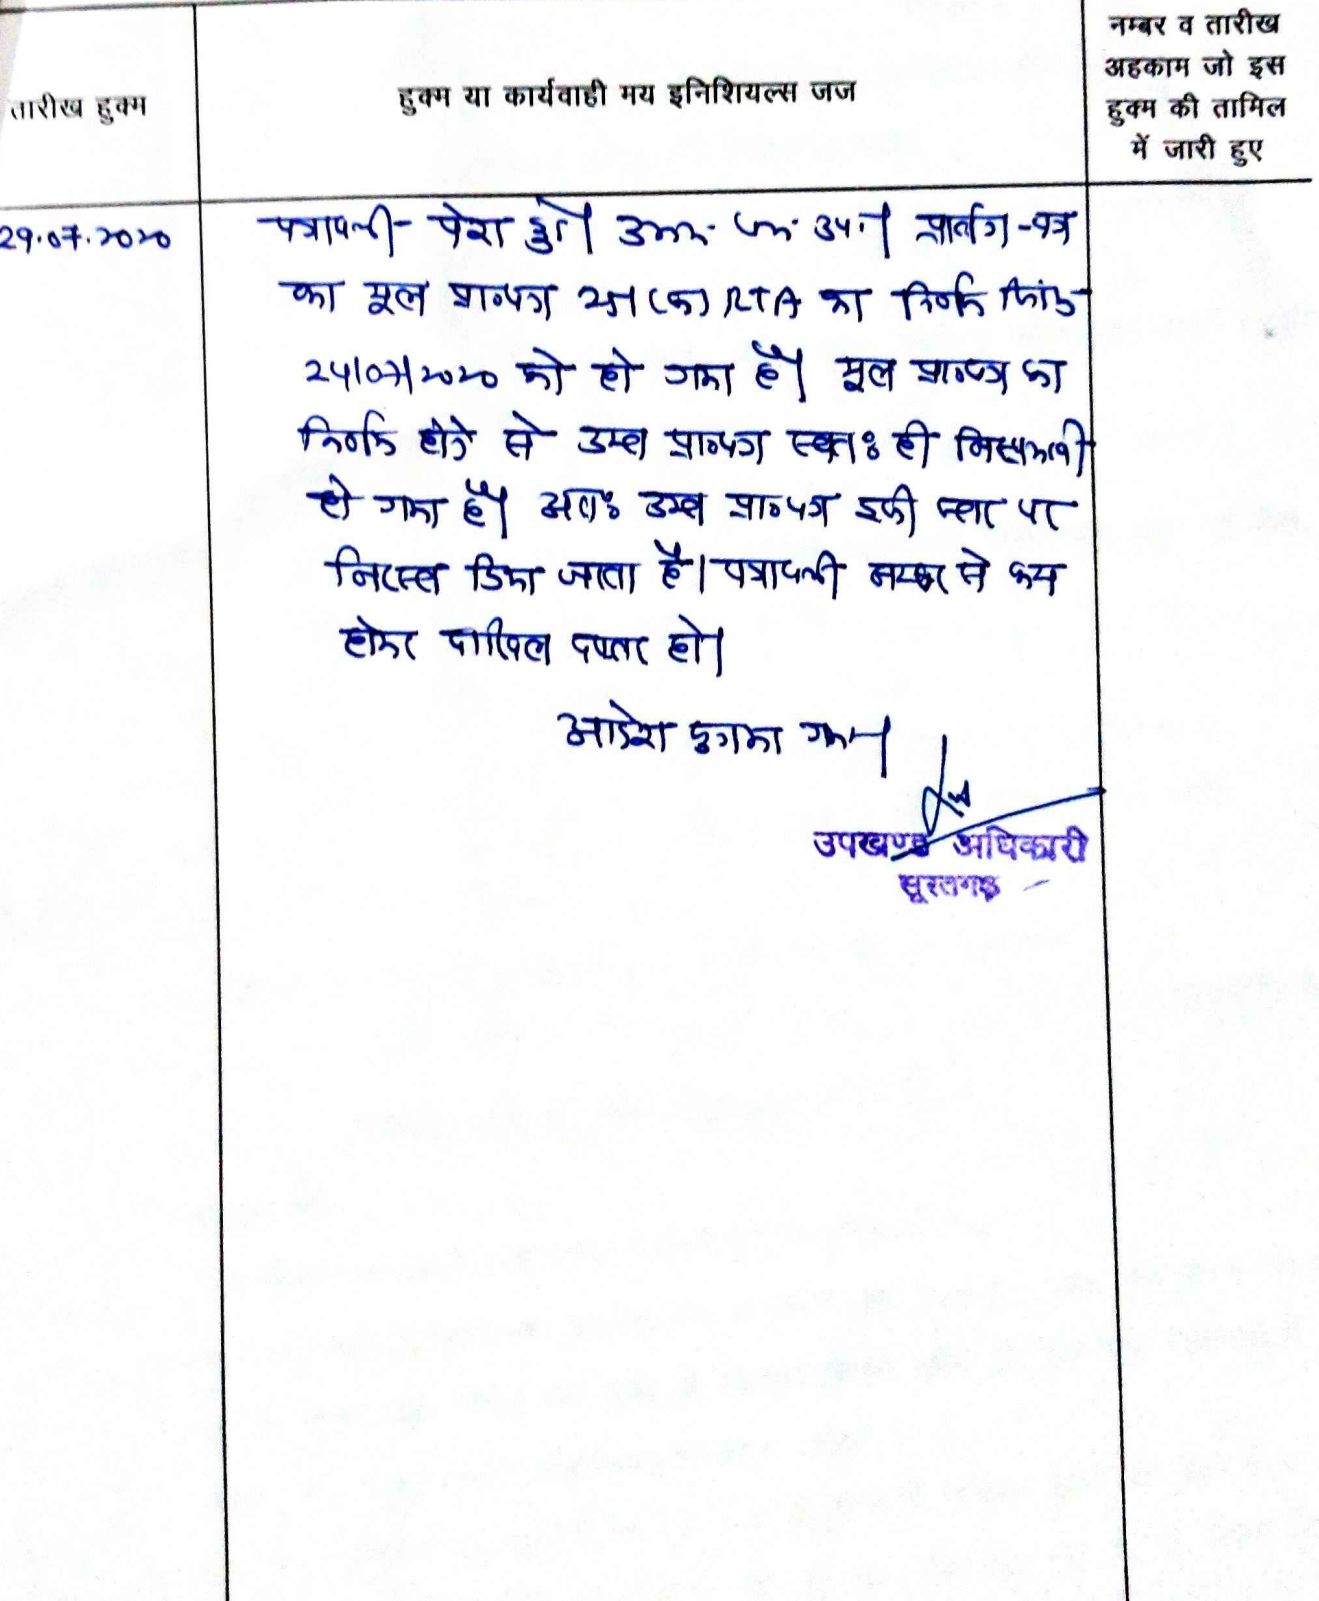 तारीख हुक्म
हुक्म या कार्यवाही मय इनिशियल्स जज
नम्बर व तारीख
अहकाम जो इस
हुक्म की तामिल
में जारी हुए
29.07.2020
पत्रावली पेश हुई। उप.। प्रार्थना-पत्र
का मूल प्रा०पत्र (क) RTA का निर्णय दिनांक
24/07/2020 को हो गया है। मूल प्रा०पत्र का
निर्णय होने से उक्त प्रा०पत्र स्वतः ही
हो गया है। अतः उक्त प्रा०पत्र इसी स्तर पर
निरस्त किया जाता है। पत्रावली नम्बर से कम
होकर दाखिल दफ्तर हो।
आदेश सुनाया गया।
उपखण्ड अधिकारी
सूरतगढ़